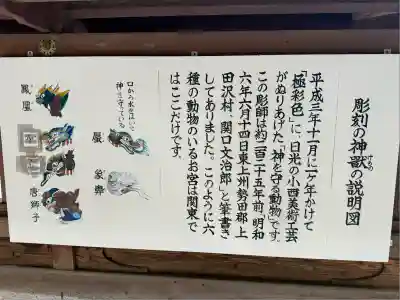 彫刻の神獣の説明図
平成三年十一月に一ヶ年かけて
「極彩色」に、日光の小西美術工芸
がぬりあげた「神を守る動物」です。
この彫師は約二百二十五年前、明和
六年六月十四日東上州勢田郡上
田沢村、関口文治郎」と筆書き
してありました。このように六
種の動物のいるお宮は関東で
はここだけです。
口から水をはいて
神を守っている
鳳凰
唐獅子